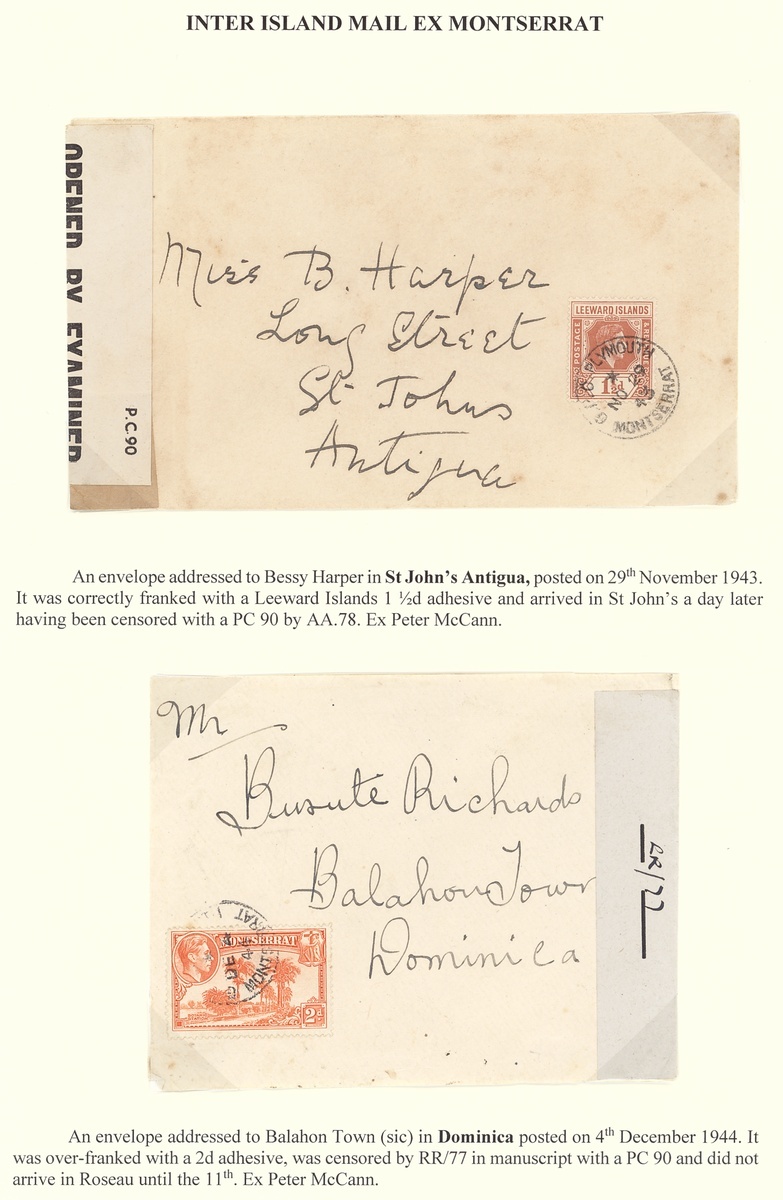 INTER ISLAND MAIL EX MONTSERRAT
OPENED BY EXAMINER
P.C.90
Miss B. Harper
Long Street
St Johns
Antigua
LEEWARD ISLANDS
POSTAGE
1½d
PLYMOUTH
NO 29
43
MONTSERRAT
An envelope addressed to Bessy Harper in St John's Antigua, posted on 29th November 1943.
It was correctly franked with a Leeward Islands 1 ½d adhesive and arrived in St John's a day later
having been censored with a PC 90 by AA.78. Ex Peter McCann.
Mr
Busute Richards
Balahon Town
Dominica
RR/77
MONTSERRAT
2d
DE 4
44
MONTSERRAT
An envelope addressed to Balahon Town (sic) in Dominica posted on 4th December 1944. It
was over-franked with a 2d adhesive, was censored by RR/77 in manuscript with a PC 90 and did not
arrive in Roseau until the 11th. Ex Peter McCann.